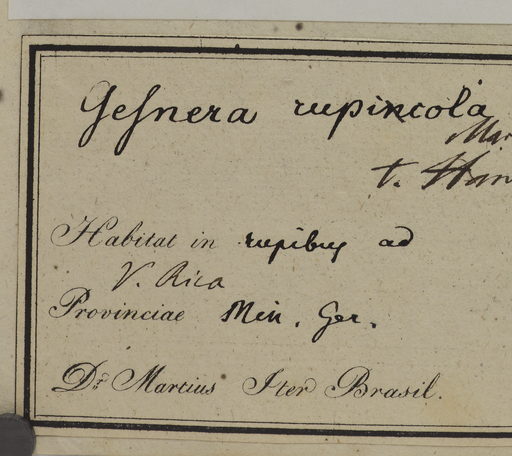 Geſnera rupincola
Mar
t. Han
Habitat in rupibus ad
V. Rica
Provinciae Min. Ger.
Dr. Martius Iter Brasil.